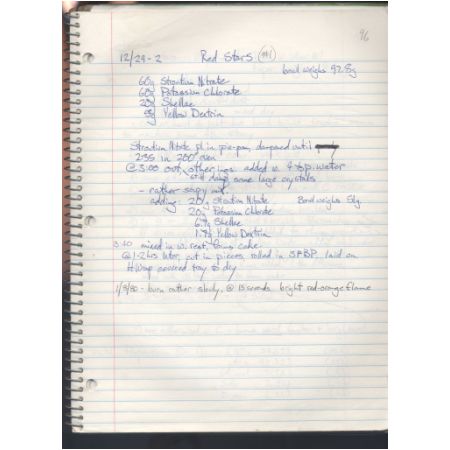 96
12/29-2 Red Stars (#1)
bowl weighs 92.8g
60g Strontium Nitrate
60g Potassium Chlorate
20g Shellac
5g Yellow Dextrin
Strontium Nitrate pl. in pie-pan, dampened until
2:35 in 200° oven
@ 3:00 out, other ings. added w. 4 tsp. water
still damp, some large crystals
- rather soupy mix
adding: 20g Strontium Nitrate Bowl weighs
20g Potassium Chlorate
6.7g Shellac
1.7g Yellow Dextrin
3:40 mixed in w. rest, forms cake
@ 1-2 hrs later, cut in pieces, rolled in SFBP laid on
covered tray to dry
1/3/80 - burn rather slowly, @ 15 seconds bright red-orange flame